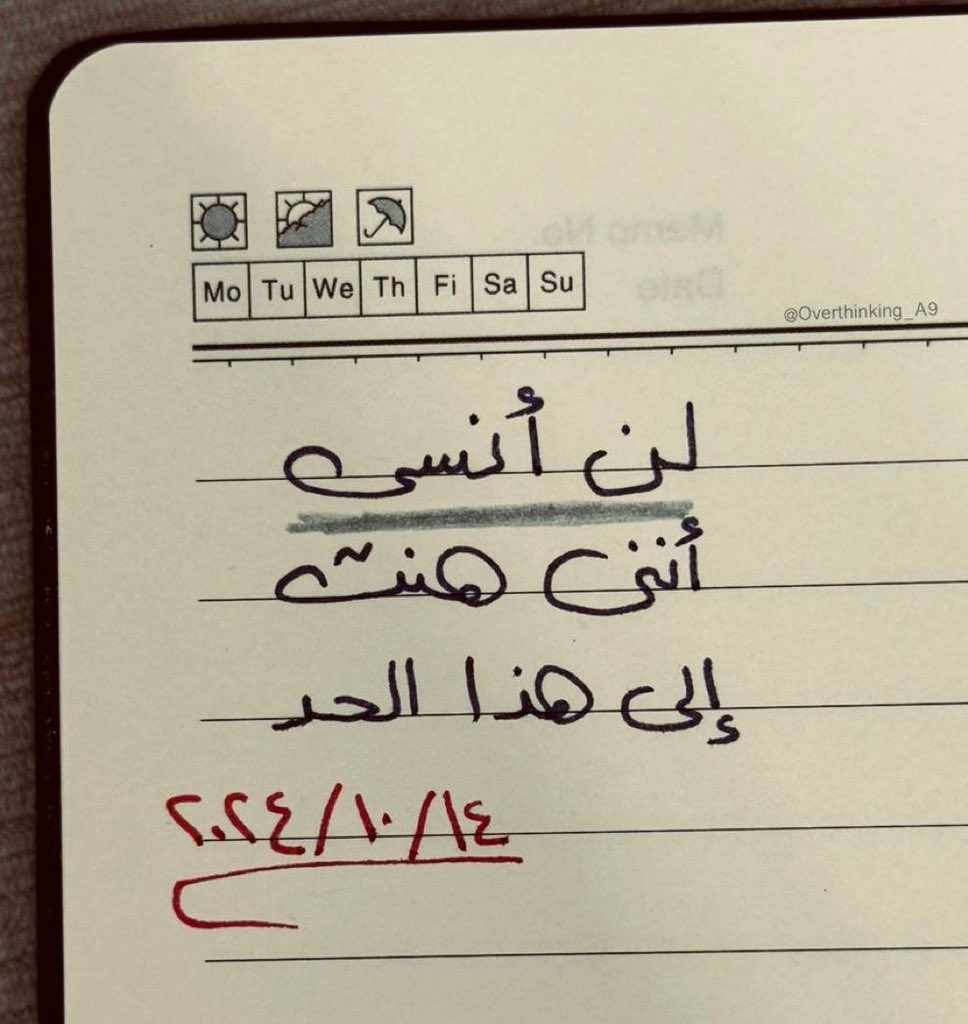 Memo No.
Date
Mo Tu We Th Fi Sa Su
@Overthinking_A9
لن أنسى
أنني هنت
إلى هذا الحد
٢٠٢٤/١٠/١٤